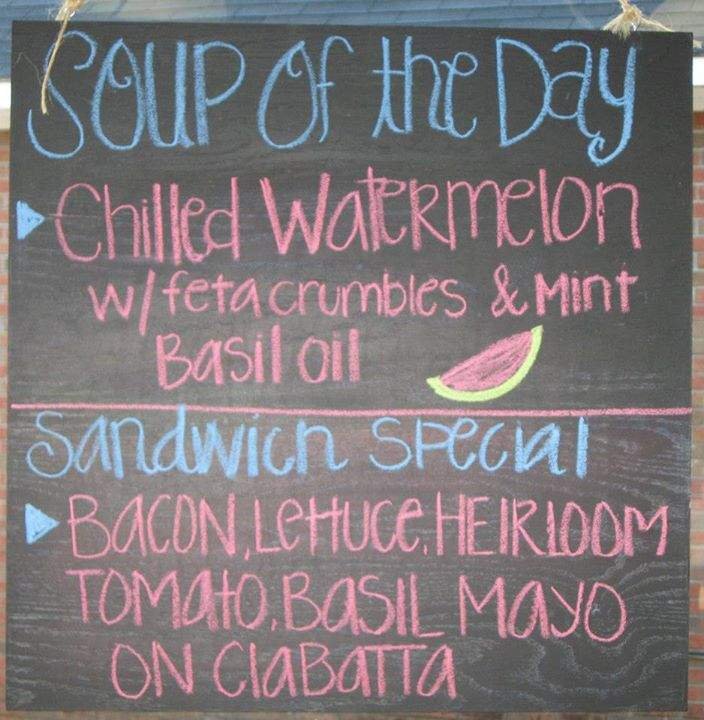 Soup of the Day
Chilled Watermelon
w/ feta crumbles & Mint
Basil oil
Sandwich Special
Bacon, Lettuce, HEIRLOOM
TOMATO, BASIL MAYO
ON CIABATTA